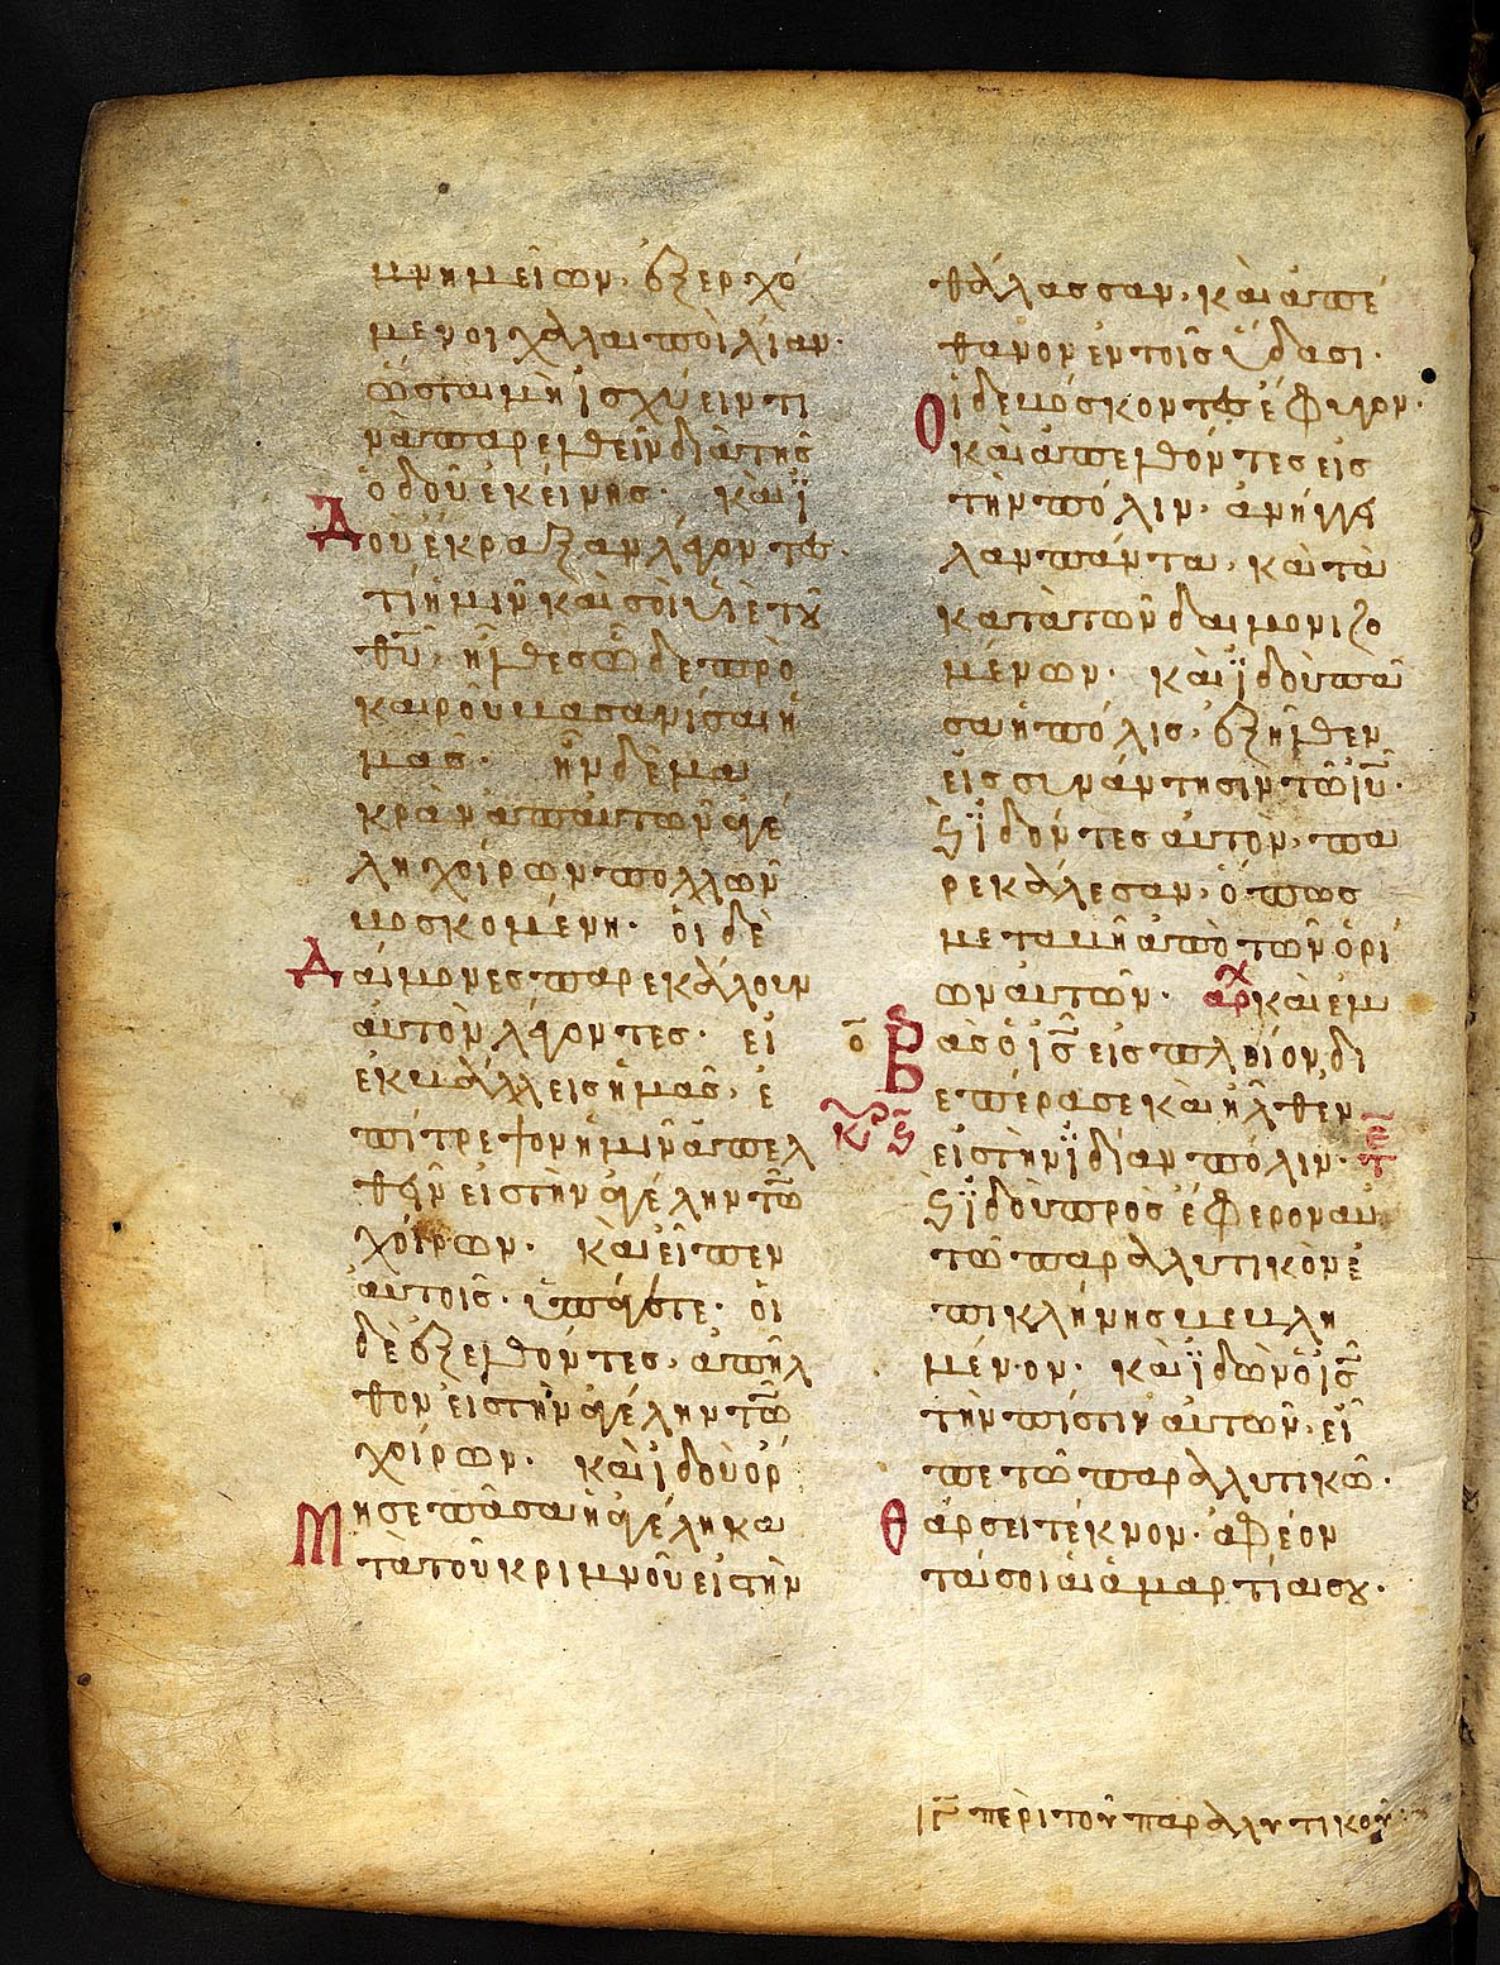 μνημείων, ἐξερχό
μενοι χαλαιποὶ λίαν·
ὥσται μὴ ἰσχύειν τι
νὰ παρελθεῖν διὰ τῆς
ὁδοῦ ἐκείνης· καὶ ϊ
Δοὺ ἔκραξαν λέγοντες·
τί ἡμῖν καὶ σοὶ υἱὲ τοῦ
θ̅υ̅, ἦλθες ὧδε πρὸ
καιροῦ βασανίσαι ἡ
μᾶς· ἦν δὲ μα
κρὰν ἀπ' αὐτῶν ἀγέ
λη χοίρων πολλῶν
βοσκομένη· οἱ δὲ
Δαίμονες παρεκάλουν
αὐτὸν λέγοντες· εἰ
ἐκβάλλεις ἡμᾶς, ἐ
πίτρεψον ἡμῖν ἀπελ
θεῖν εἰς τὴν ἀγέλην τῶ
χοίρων· καὶ εἶπεν
αὐτοῖς· ὑπάγετε· οἱ
δὲ ἐξελθόντες, ἀπῆλ
θον εἰς τὴν ἀγέλην τῶ
χοίρων· καὶ ἰδοὺ ὅρ
μησε πᾶσα ἡ ἀγέλη κα
τὰ τοῦ κριμνοῦ εἰς τὴν
θάλασσαν, καὶ ἀπέ
θανον ἐν τοῖς ὕδασι·
Οἱ δὲ βόσκοντες ἔφυγον·
καὶ ἀπελθόντες εἰς
τὴν πόλιν, ἀνήγγει
λαν πάντα, καὶ τὰ
κατὰ τῶν δαιμονιζο
μένων· καὶ ϊδοὺ πᾶ
σα ἡ πόλις, ἐξῆλθεν
εἰς συνάντησιν τῶ ἰ̅υ̅·
ϗ ϊδόντες αὐτὸν, πα
ρεκάλεσαν, ὅπως
μεταβῆ ἀπὸ τῶν ὁρί
ων αὐτῶν· αρχ καὶ ἐμ
Βὰς ὁ ἰ̅ς̅ εἰς πλοίον, δι
επέρασε καὶ ἦλθεν
εἰς τὴν ϊδίαν πόλιν·
ϗ ϊδοὺ προσέφερον αυ
τῶ παραλυτικὸν ἐ
πὶ κλήνης βεβλη
μένον· καὶ ϊδὼν ὁ ἰ̅ς̅
τὴν πίστιν αὐτῶν, εἶ
πε τῶ παραλυτικῶ·
Θάρσει τέκνον· ἀφέον
ταί σοι αἱ ἁμαρτίαι σου·
ι̅γ̅ περὶ τοῦ παραλυτικοῦ